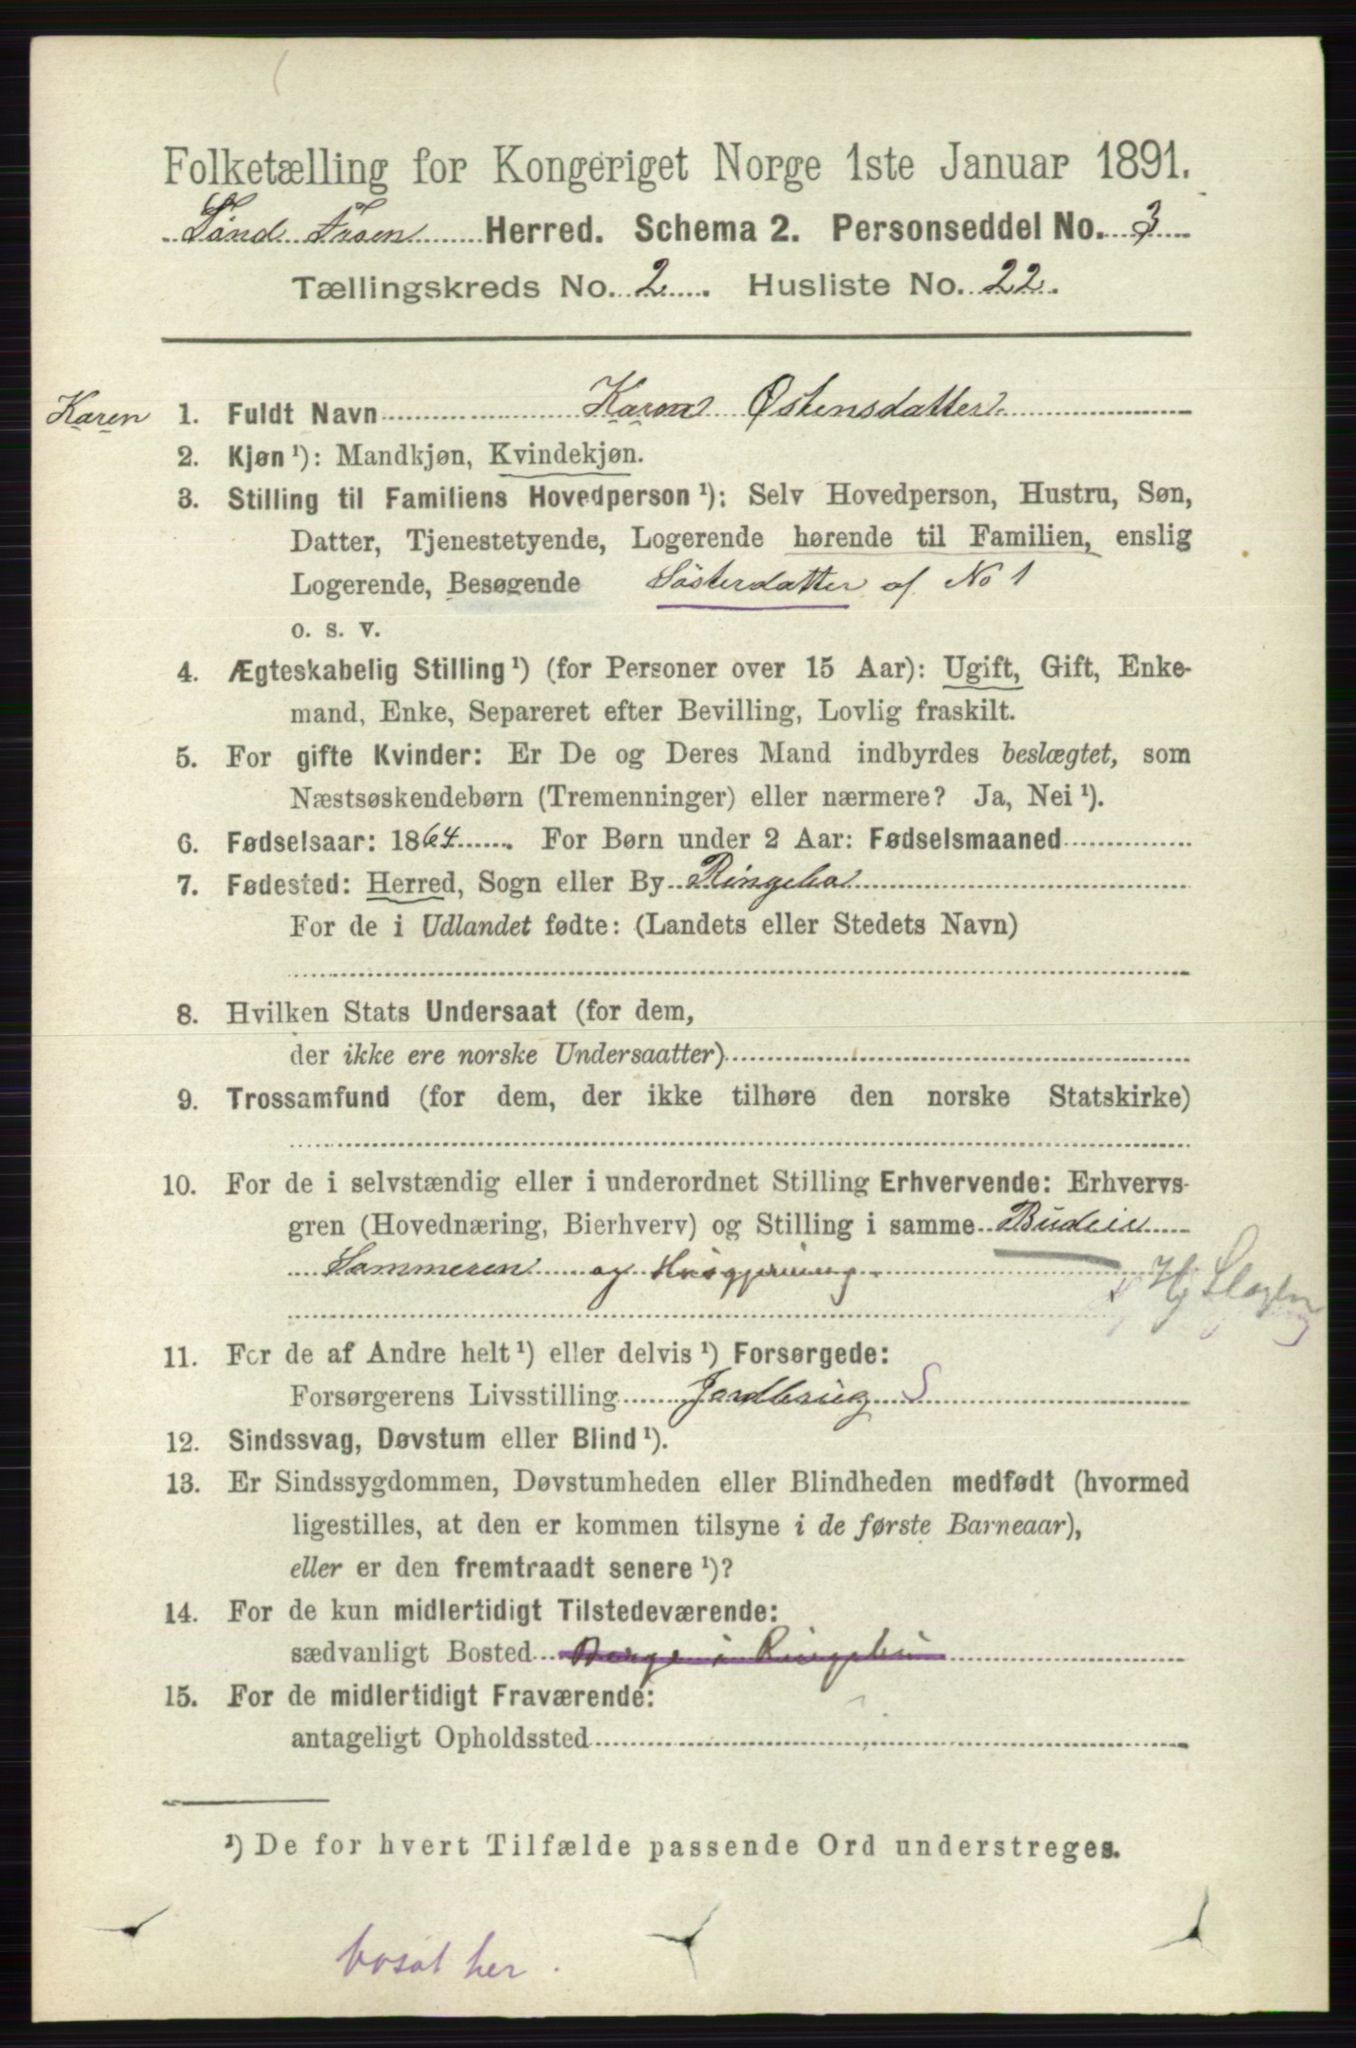 Folketælling for Kongeriget Norge 1ste Januar 1891.
Sønd Froen Herred. Schema 2. Personseddel No. 3
Tællingskreds No. 2. Husliste No. 22.
Karen
1. Fuldt Navn Karen Østensdatter
2. Kjøn¹): Mandkjøn, Kvindekjøn.
3. Stilling til Familiens Hovedperson¹): Selv Hovedperson, Hustru, Søn,
Datter, Tjenestetyende, Logerende hørende til Familien, enslig
Logerende, Besøgende Søsterdatter af No 1
o. s. v.
4. Ægteskabelig Stilling¹) (for Personer over 15 Aar): Ugift, Gift, Enke-
mand, Enke, Separeret efter Bevilling, Lovlig fraskilt.
5. For gifte Kvinder: Er De og Deres Mand indbyrdes beslægtet, som
Næstsøskendebørn (Tremenninger) eller nærmere? Ja, Nei¹).
6. Fødselsaar: 1864. For Børn under 2 Aar: Fødselsmaaned
7. Fødested: Herred, Sogn eller By Ringebo
For de i Udlandet fødte: (Landets eller Stedets Navn)
8. Hvilken Stats Undersaat (for dem,
der ikke ere norske Undersaatter)
9. Trossamfund (for dem, der ikke tilhøre den norske Statskirke)
10. For de i selvstændig eller i underordnet Stilling Erhvervende: Erhvervs-
gren (Hovednæring, Bierhverv) og Stilling i samme Budeie
Sommeren og Husgjerning
11. For de af Andre helt¹) eller delvis¹) Forsørgede:
Forsørgerens Livsstilling Jordbrug S
12. Sindssvag, Døvstum eller Blind¹).
13. Er Sindssygdommen, Døvstumheden eller Blindheden medfødt (hvormed
ligestilles, at den er kommen tilsyne i de første Barneaar),
eller er den fremtraadt senere¹)?
14. For de kun midlertidigt Tilstedeværende:
sædvanligt Bosted i Ringebu
15. For de midlertidigt Fraværende:
antageligt Opholdssted
¹) De for hvert Tilfælde passende Ord understreges.
bosat her.